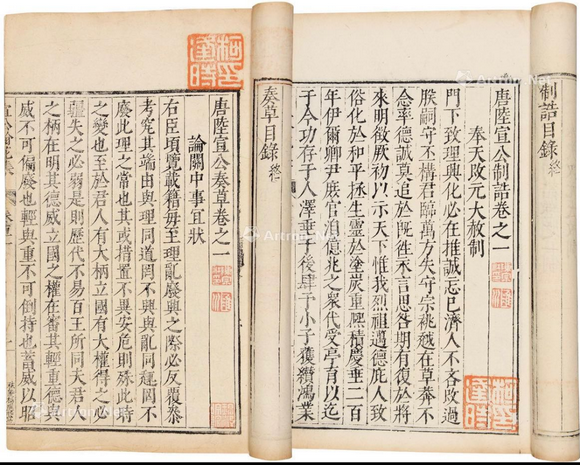 制誥目錄 終
唐陸宣公制誥卷之一
奉天改元大赦制
門下致理興化必在推誠忘已濟人不吝改過
朕嗣守丕構君臨萬方失守宗祧越在草莽不
念率德誠莫追於旣徃永言思咎期有復於將
來明徵厥初以示天下惟我烈祖邁德庇人致
俗化於和平拯生靈於塗炭重熙積慶垂二百
年伊爾卿尹庶官洎億兆之衆代受亭育以迄
于今功存于人澤垂于後肆予小子獲纘鴻業
柯逢時印
奏草目錄 終
唐陸宣公奏草卷之一
論關中事宜狀
右臣頃覽載籍每至理亂廢興之際必反覆叅
考究其端由與理同道罔不興與亂同趣罔不
廢此理之常也其或措置不異安危則殊此時
之變也至於君人有大柄立國有大權得之必
彊失之必弱是則歷代不易百王所同夫君人
之柄在明其德威立國之權在審其輕重德與
威不可偏廢也輕與重不可倒持也蓄威以昭
柯逢時印